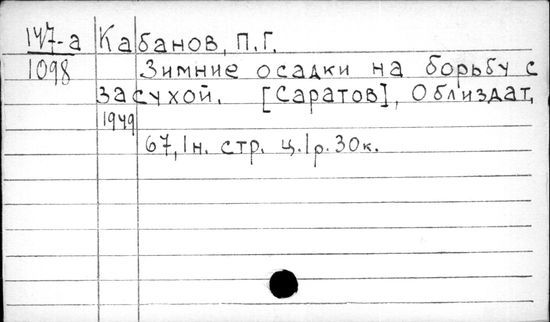 147-а Кабанов, П.Г.
1098 Зимние осадки на борьбу с
засухой. [Саратов], Облиздат,
1949
67, 1н. стр. ц. 1р. 30к.